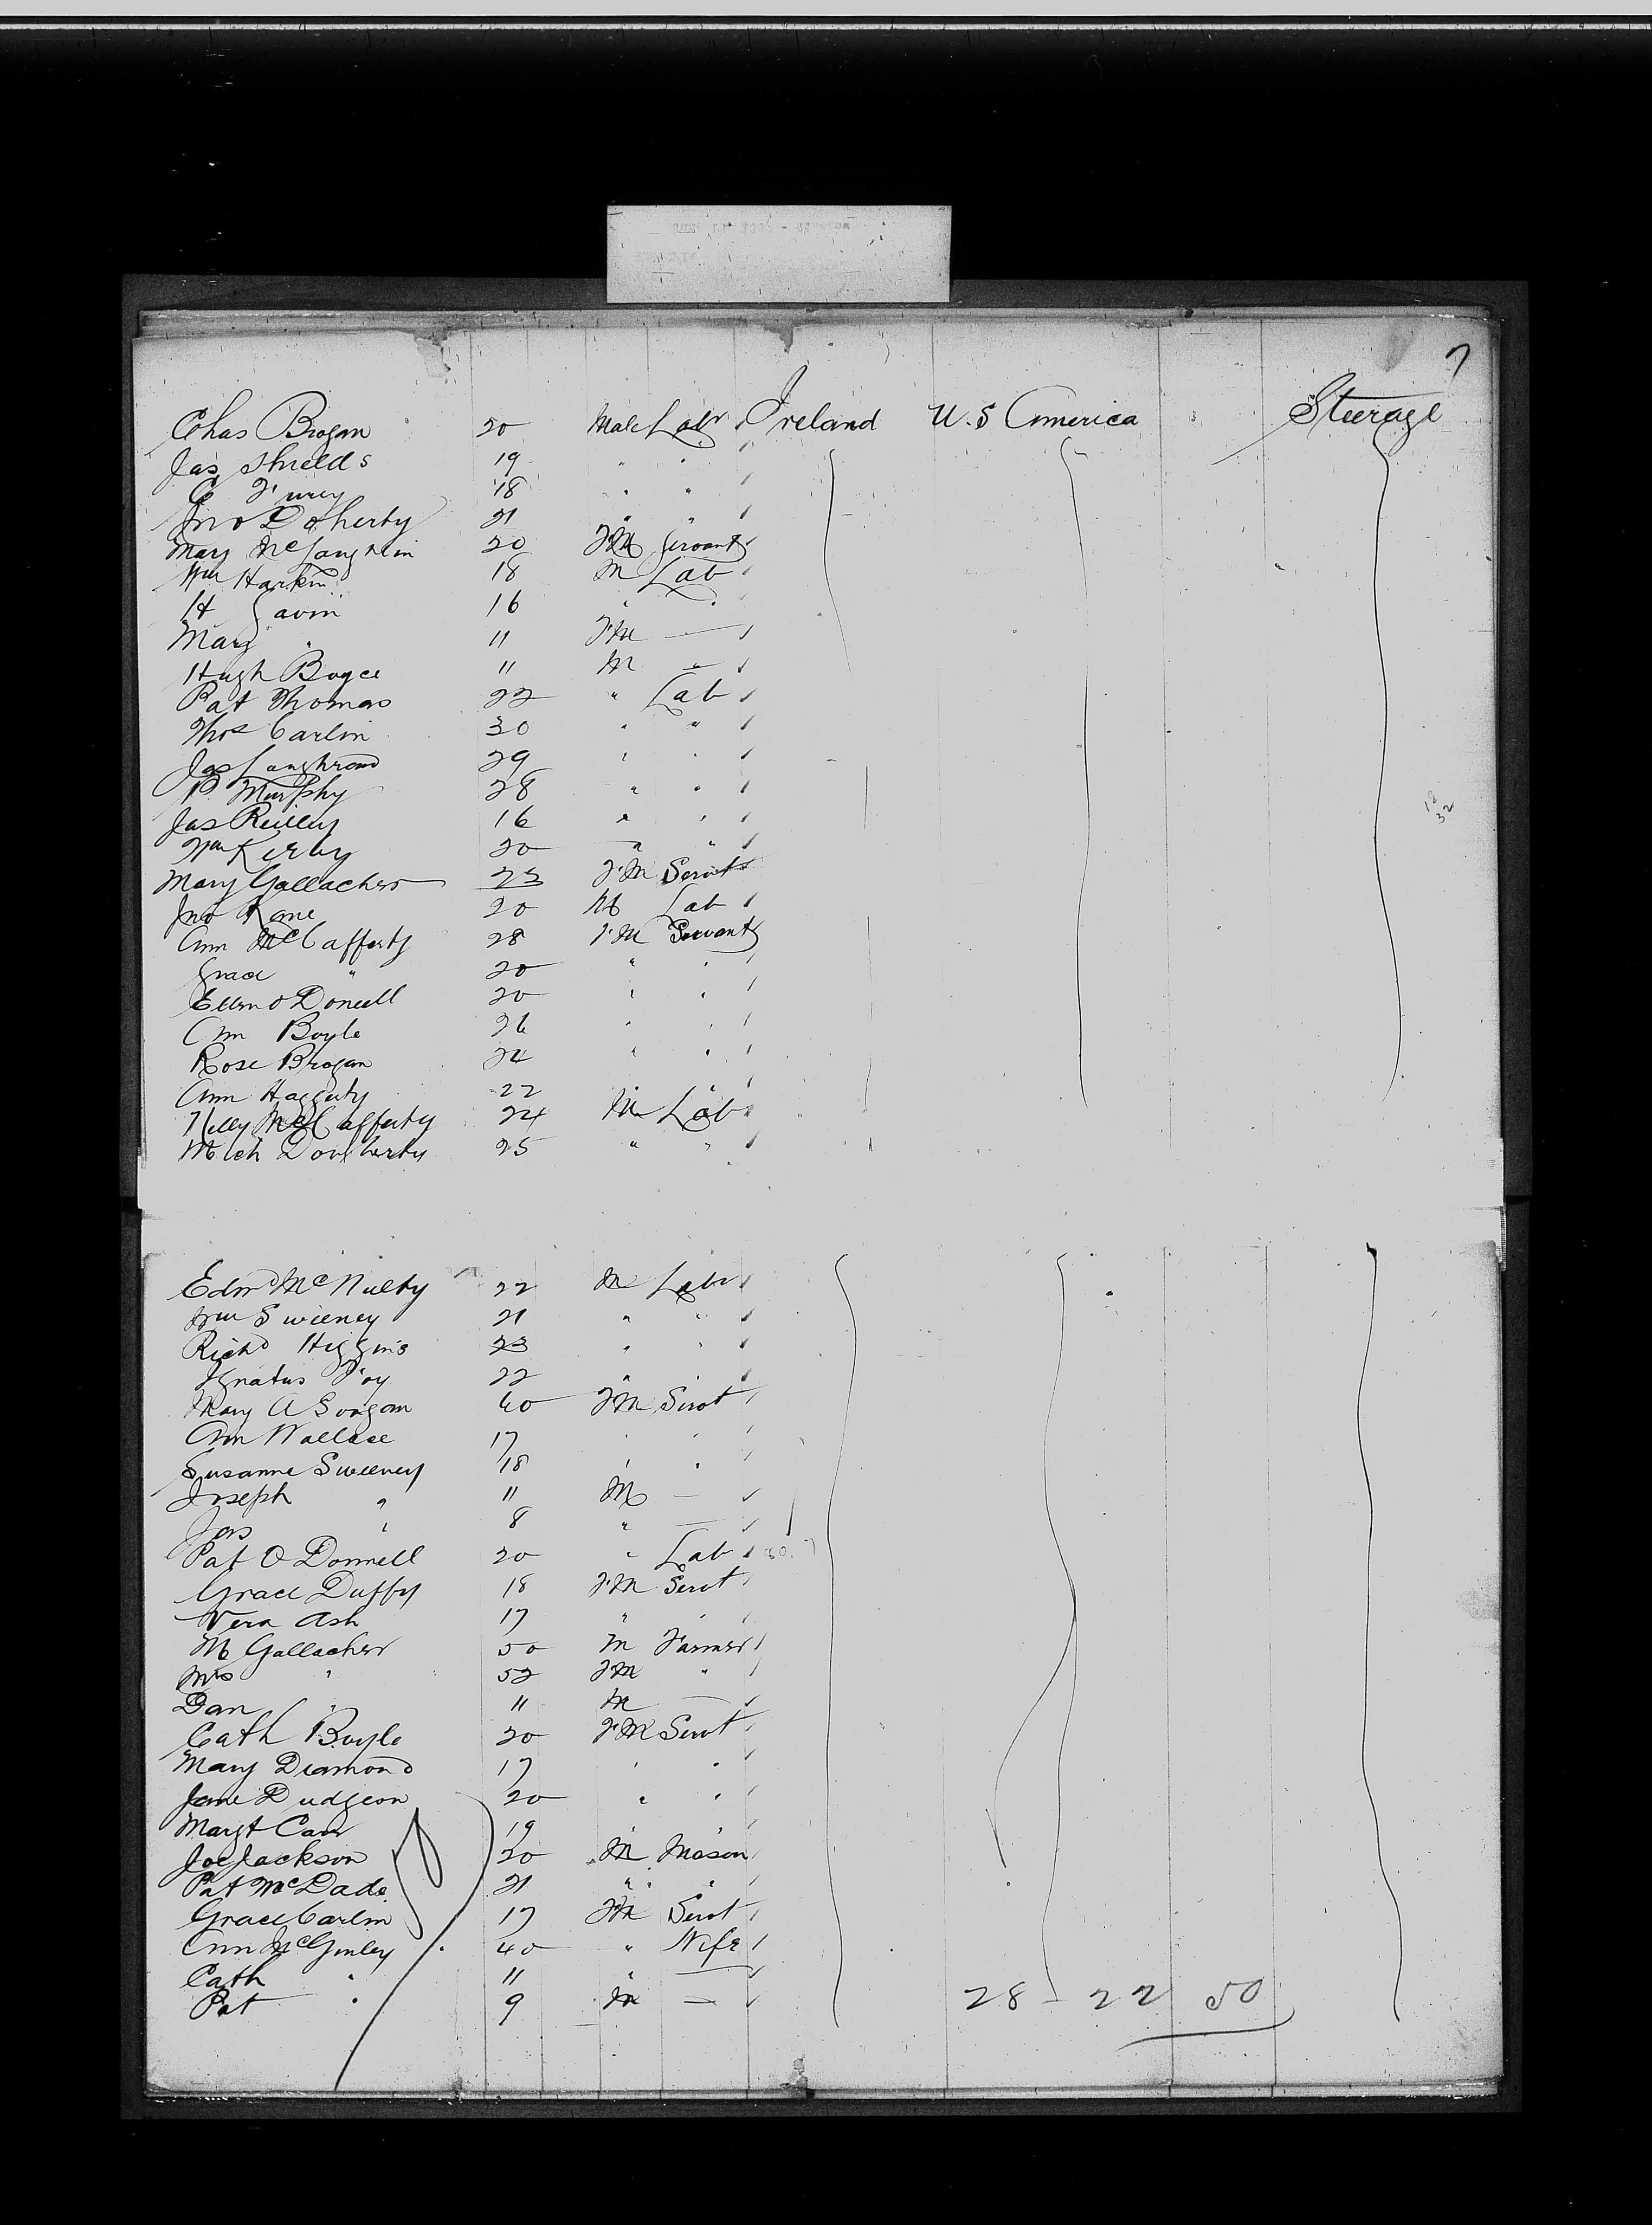 7
Chas Brogan 20 Male Labr Ireland U.S America Steerage
Jas Shields 19 " "
C Furey 18 " "
Jno Doherty 21 " "
Mary McLaughlin 20 FM Servant
Wm Harkin 18 M Lab
H Gavin 16 " "
Mary " 11 FM —
Hugh Boyce 11 M —
Pat Thomas 22 " Lab
Thos Carlin 30 " "
Jas 29 " "
P Murphy 28 " "
Jas Reilly 16 " "
Wm Kerby 20 " "
Mary Gallacher 23 FM Servt
Jno Kane 20 M Lab
Ann McCafferty 28 FM Servant
Grace " 20 " "
Ellen O Donell 20 " "
Ann Boyle 26 " "
Rose Brogan 24 " "
Ann Haggerty 22 " "
Nelly McCafferty 24 M Lab
Mich Dougherty 25 " "
Edmd McNulty 22 M Labr
Wm Sweeney 21 " "
Richd Higgins 23 " "
Ignatus Foy 22 " "
Mary A 40 FM Servt
Ann Wallace 17 " "
Susanne Sweeney 18 " "
Joseph " 11 M —
Jas " 8 " —
Pat O Donnell 20 " Lab
Grace Duffy 18 FM Servt
Vera Ash 17 " "
M Gallacher 50 M Farmer
Mrs " 52 FM "
Dan " 11 M —
Cath Boyle 20 FM Servt
Mary Diamond 17 " "
Jane Dudgeon 20 " "
Margt Carr 19 " "
Joe Jackson 20 M Mason
Pat McDade 21 " "
Grace Carlin 17 FM Servt
Ann McGinley 40 " Wife
Cath " 11 " —
Pat " 9 M —
28 - 22 50